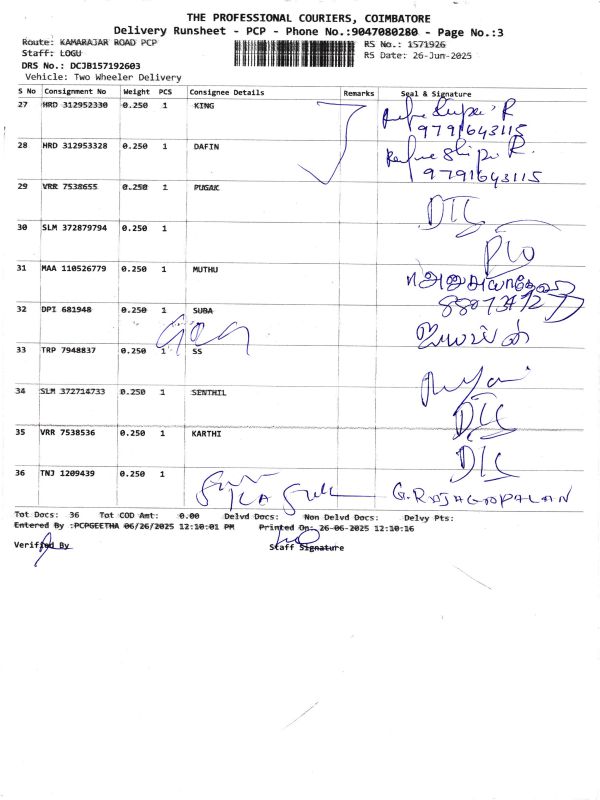 THE PROFESSIONAL COURIERS, COIMBATORE
Delivery Runsheet - PCP - Phone No.:9047080280 - Page No.:3
Route: KAMARAJAR ROAD PCP RS No.: 1571926
Staff: LOGU RS Date: 26-Jun-2025
DRS No.: DCJB157192603
Vehicle: Two Wheeler Delivery
S No Consignment No Weight PCS Consignee Details Remarks Seal & Signature
27 HRD 312952330 0.250 1 KING
9791643115
28 HRD 312953328 0.250 1 DAFIN
9791643115
29 VRR 7538655 0.250 1 PUGAK DTC
30 SLM 372879794 0.250 1
31 MAA 110526779 0.250 1 MUTHU
32 DPI 681948 0.250 1 SUBA
33 TRP 7948837 0.250 1 SS
34 SLM 372714733 0.250 1 SENTHIL DTC
35 VRR 7538536 0.250 1 KARTHI DTC
36 TNJ 1209439 0.250 1 G.RAJAGOPALAN
Tot Docs: 36 Tot COD Amt: 0.00 Delvd Docs: Non Delvd Docs: Delvy Pts:
Entered By :PCPGEETHA 06/26/2025 12:10:01 PM Printed On: 26-06-2025 12:10:16
Verified By Staff Signature